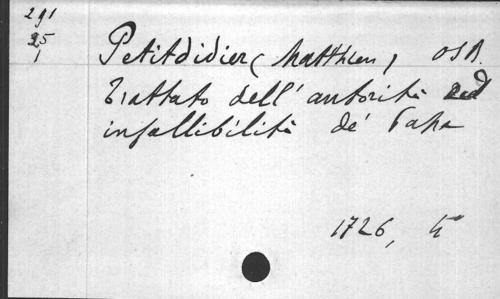 291
25
1
Petitdidier (Matthieu) OSB.
Trattato dell'autorità ed
infallibilità de' Papa
1726, 4°